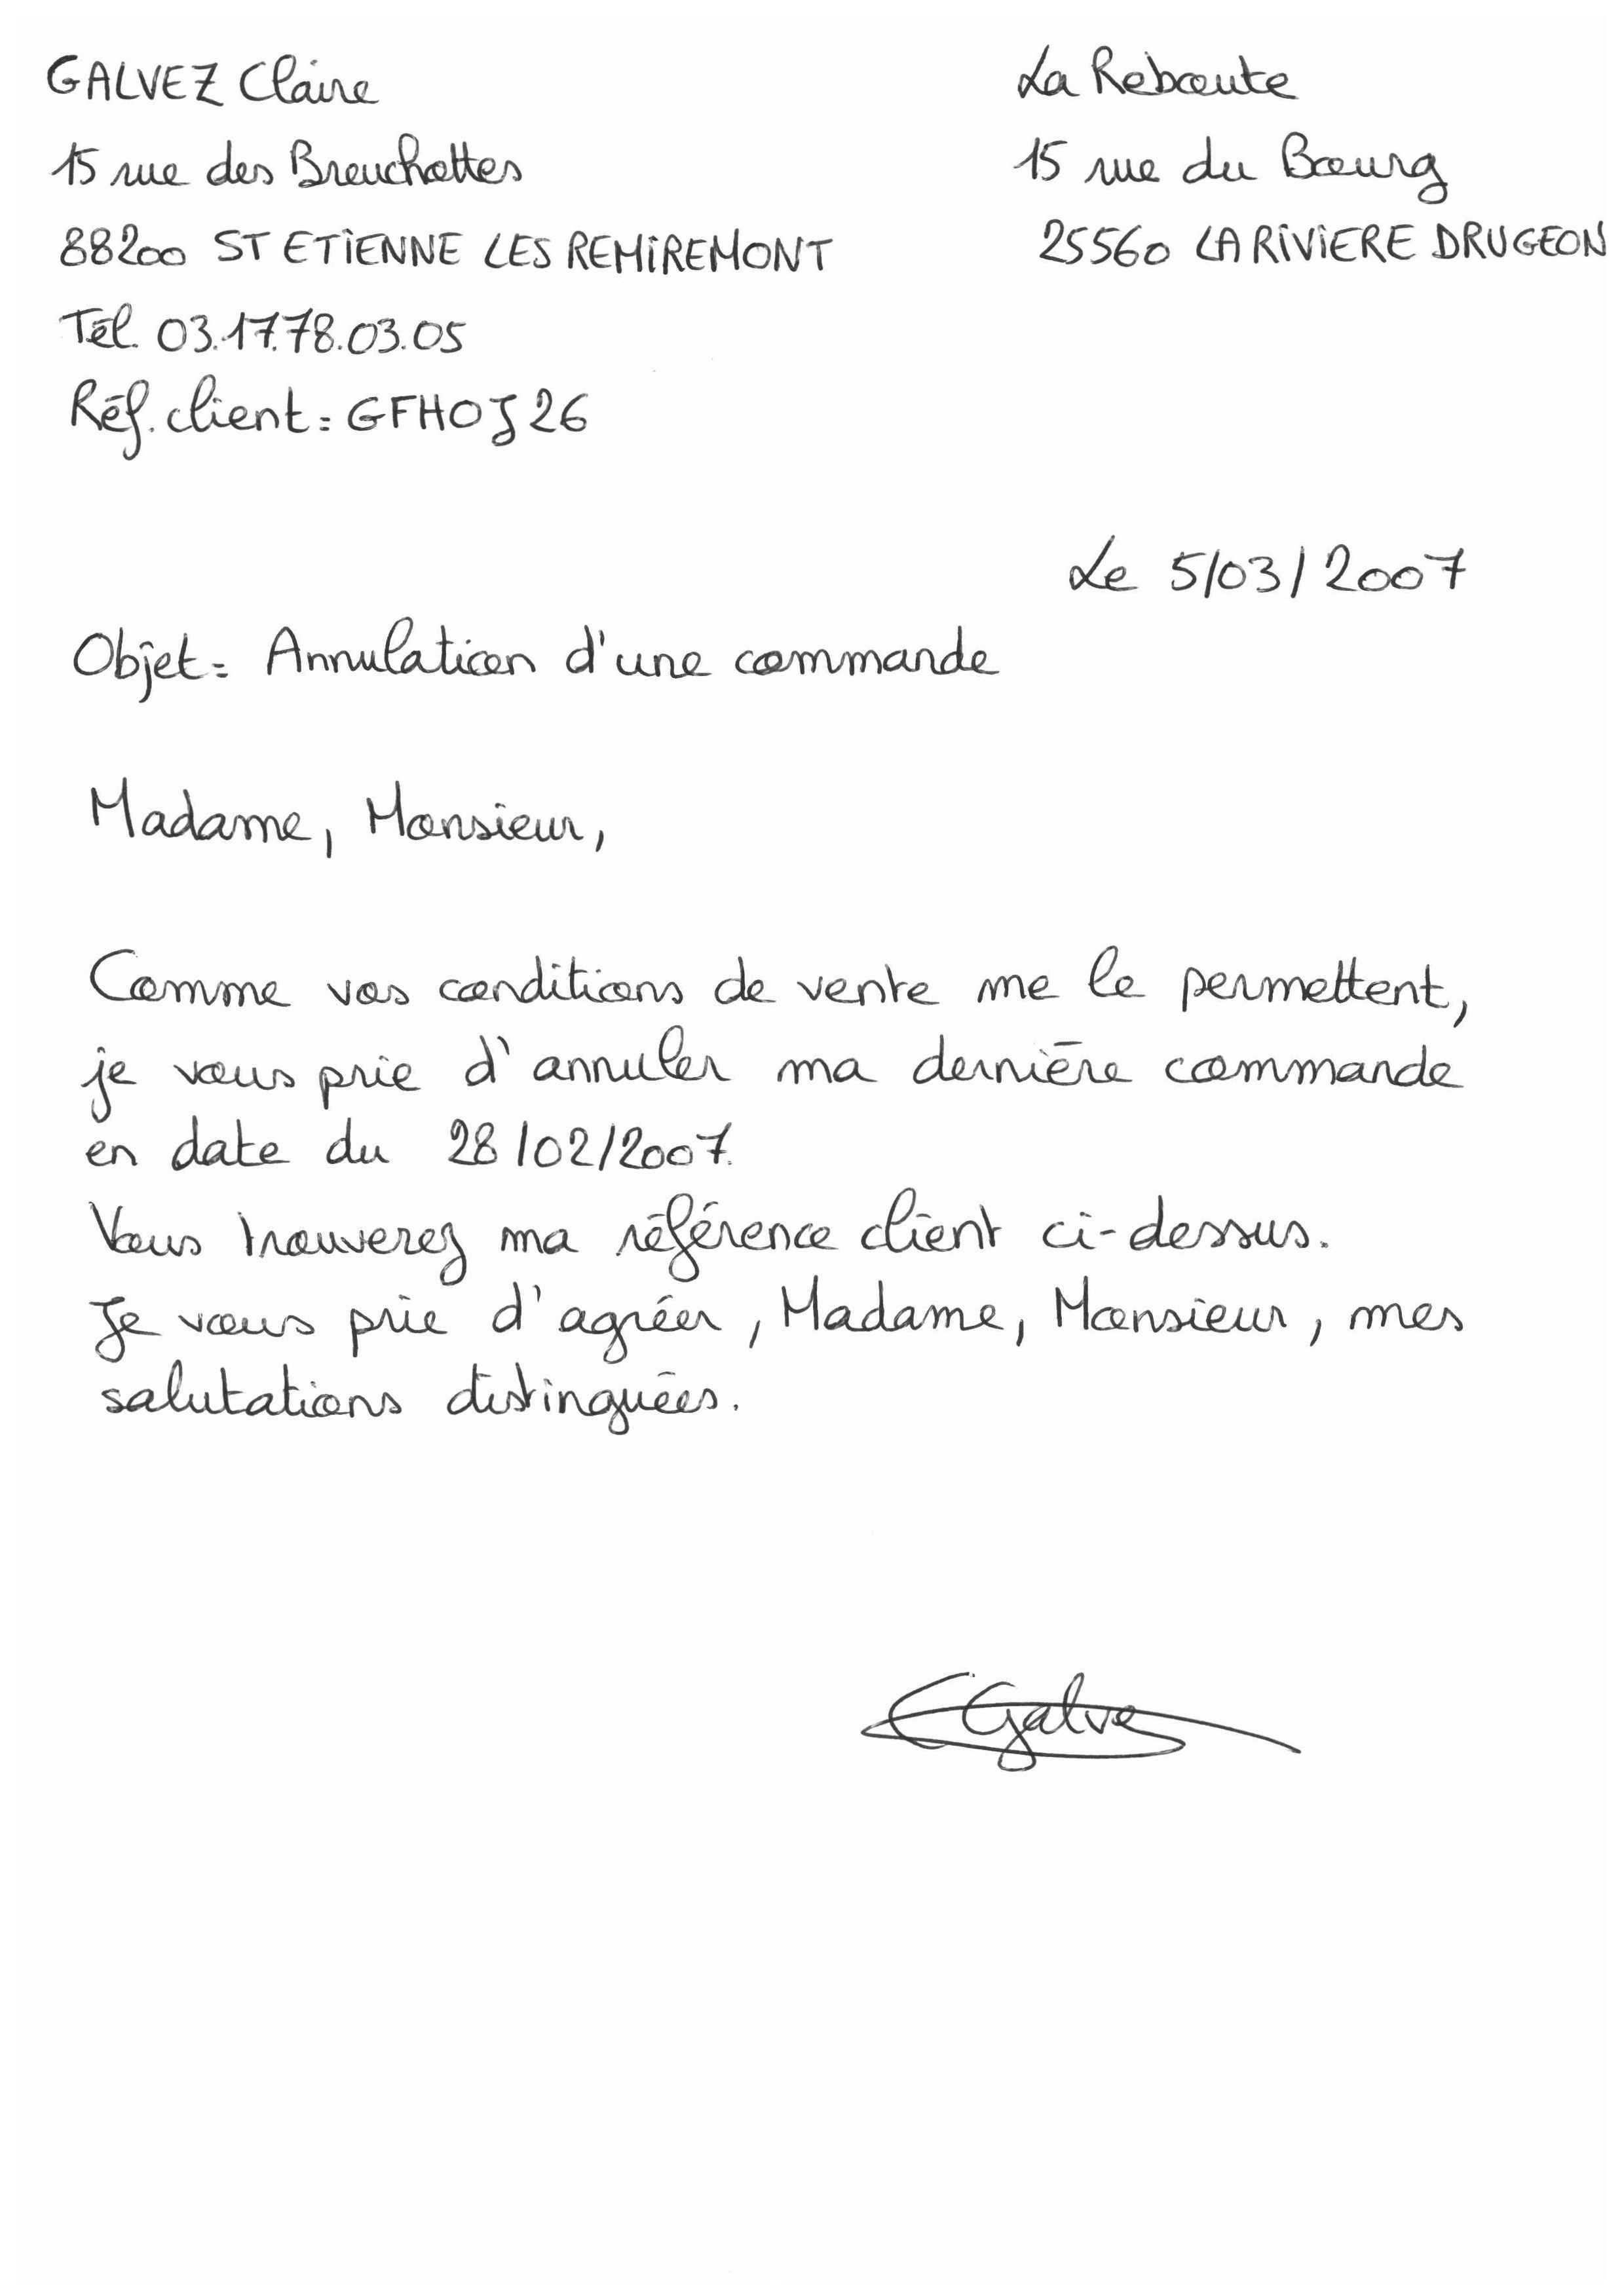 GALVEZ Claire
15 rue des Breuchottes
88200 ST ETIENNE LES REMIREMONT
Tél. 03.17.78.03.05
Réf. client : GFHOJ26
La Reboute
15 rue du Bourg
25560 LA RIVIERE DRUGEON
Le 5/03/2007
Objet : Annulation d'une commande
Madame, Monsieur,
Comme vos conditions de vente me le permettent,
je vous prie d'annuler ma dernière commande
en date du 28/02/2007.
Vous trouverez ma référence client ci-dessus.
Je vous prie d'agréer, Madame, Monsieur, mes
salutations distinguées.
CGalvez